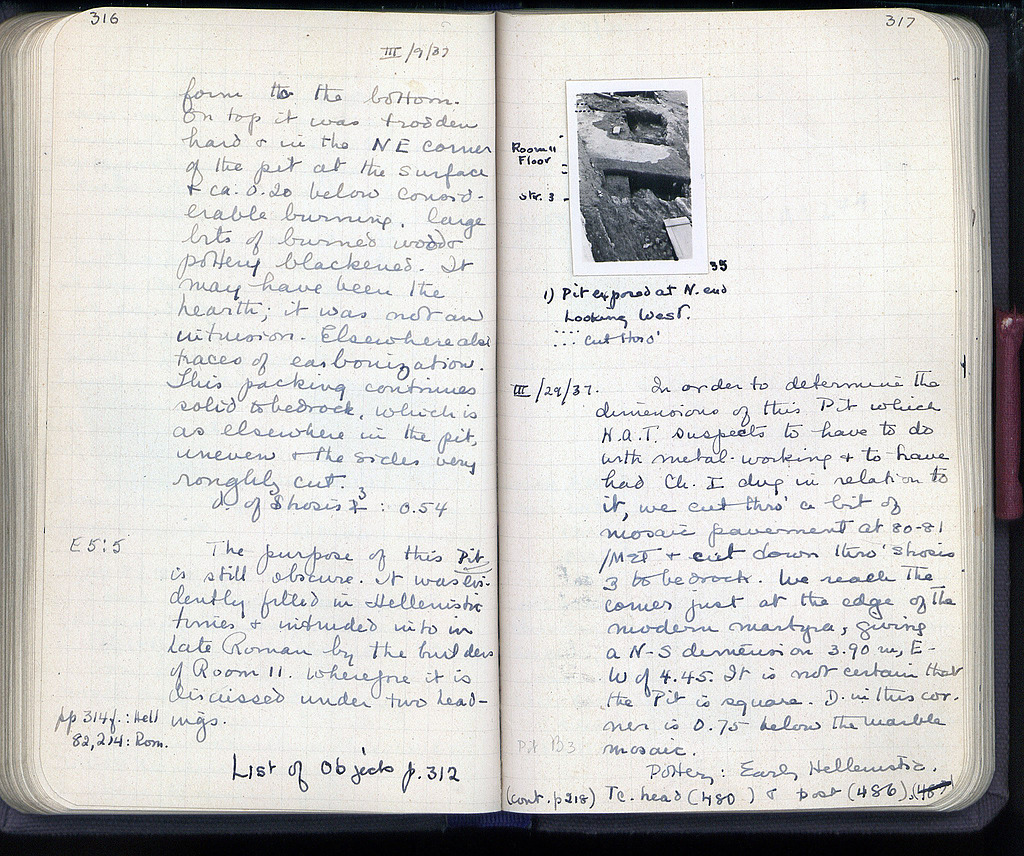 316
III/9/37
form to the bottom.
On top it was trodden
hard & in the NE corner
of the pit at the surface
& ca. 0.20 below consid-
erable burning. Large
bits of burned wood &
pottery blackened. It
may have been the
hearth; it was not an
intrusion. Elsewhere also
traces of carbonization.
This packing continues
solid to bedrock, which is
as elsewhere in the pit,
uneven & the sides very
roughly cut.
d. of Strosis 3 : 0.54
E 5:5
The purpose of this Pit
is still obscure. It was evi-
dently filled in Hellenistic
times & intruded into in
Late Roman by the builders
of Room 11. Wherefore it is
discussed under two head-
ings.
pp 314f.: Hell
82, 214: Rom.
List of Objects p. 312
317
Room 11
Floor
str. 3
35
1) Pit exposed at N. end
Looking West.
.... cut thro'
III/29/37. In order to determine the
dimensions of this Pit which
H.A.T. suspects to have to do
with metal-working & to have
had Ch. I dug in relation to
it, we cut thro' a bit of
mosaic pavement at 80-81
& cut down thro' Strosis
3 to bedrock. We reach the
corner just at the edge of the
modern martyra, giving
a N-S dimension 3.90 m, E-
W of 4.45. It is not certain that
the Pit is square. D. in this cor-
ner is 0.75 below the marble
mosaic.
Pit B3
Pottery: Early Hellenistic.
(cont. p 218) Tc. head (480) & post (486), (487)